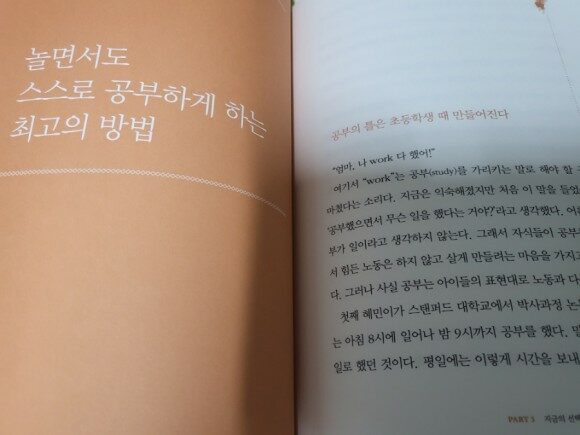 놀면서도
스스로 공부하게 하는
최고의 방법
공부의 틀은 초등학생 때 만들어진다
"엄마, 나 work 다 했어!"
여기서 "work"는 공부(study)를 가리키는 말로 해야 할
마쳤다는 소리다. 지금은 익숙해졌지만 처음 이 말을 들었
'공부했으면서 무슨 일을 했다는 거야?'라고 생각했다.
부가 일이라고 생각하지 않는다. 그래서 자식들이 공부
서 힘든 노동은 하지 않고 살게 만들려는 마음을 가지고
다. 그러나 사실 공부는 아이들의 표현대로 노동과 다
첫째 혜민이가 스탠퍼드 대학교에서 박사과정 논
는 아침 8시에 일어나 밤 9시까지 공부를 했다.
일로 했던 것이다. 평일에는 이렇게 시간을 보내
PART 5 지금의 선택